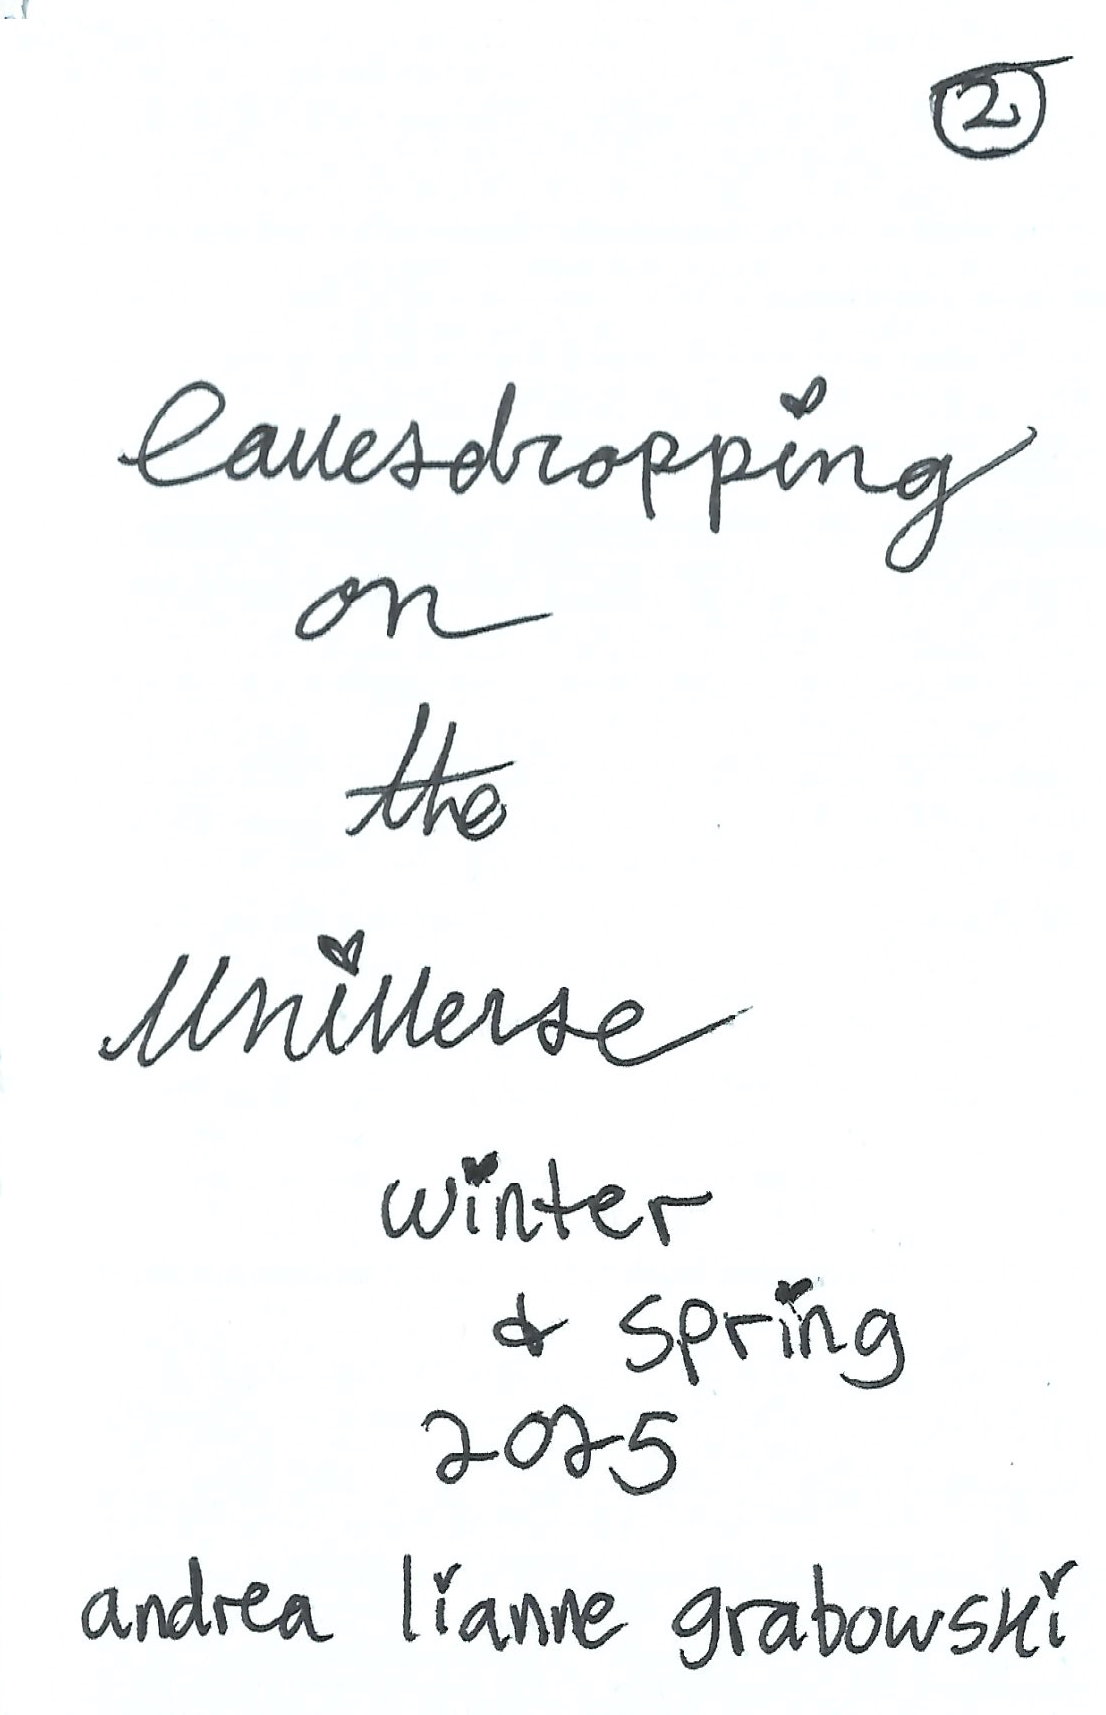 2
Eavesdropping
on
the
Universe
winter
& spring
2025
andrea lianne grabowski